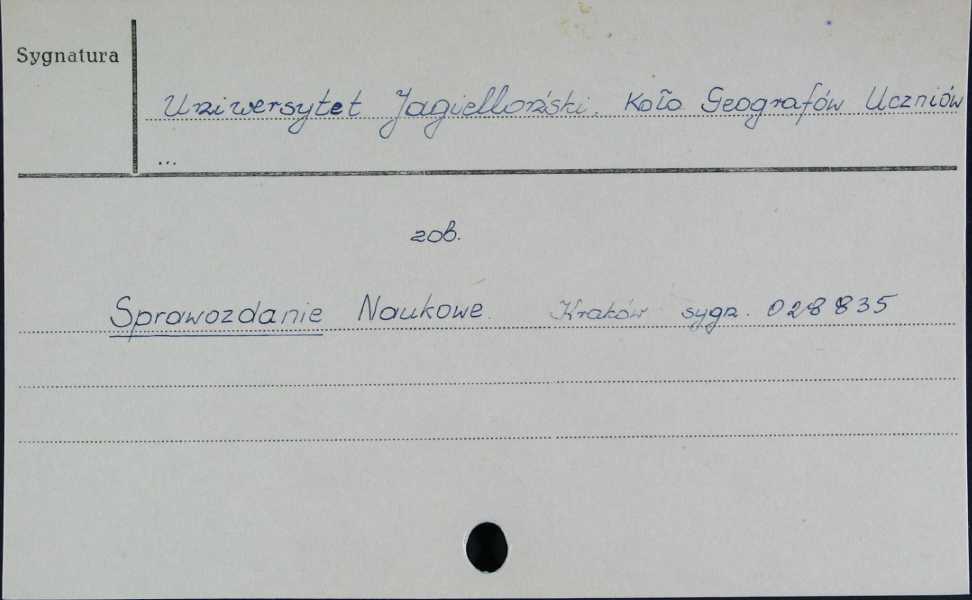 Sygnatura
Uniwersytet Jagielloński. Koło Geografów Uczniów
...
zob.
Sprawozdanie Naukowe. Kraków sygn. 028835